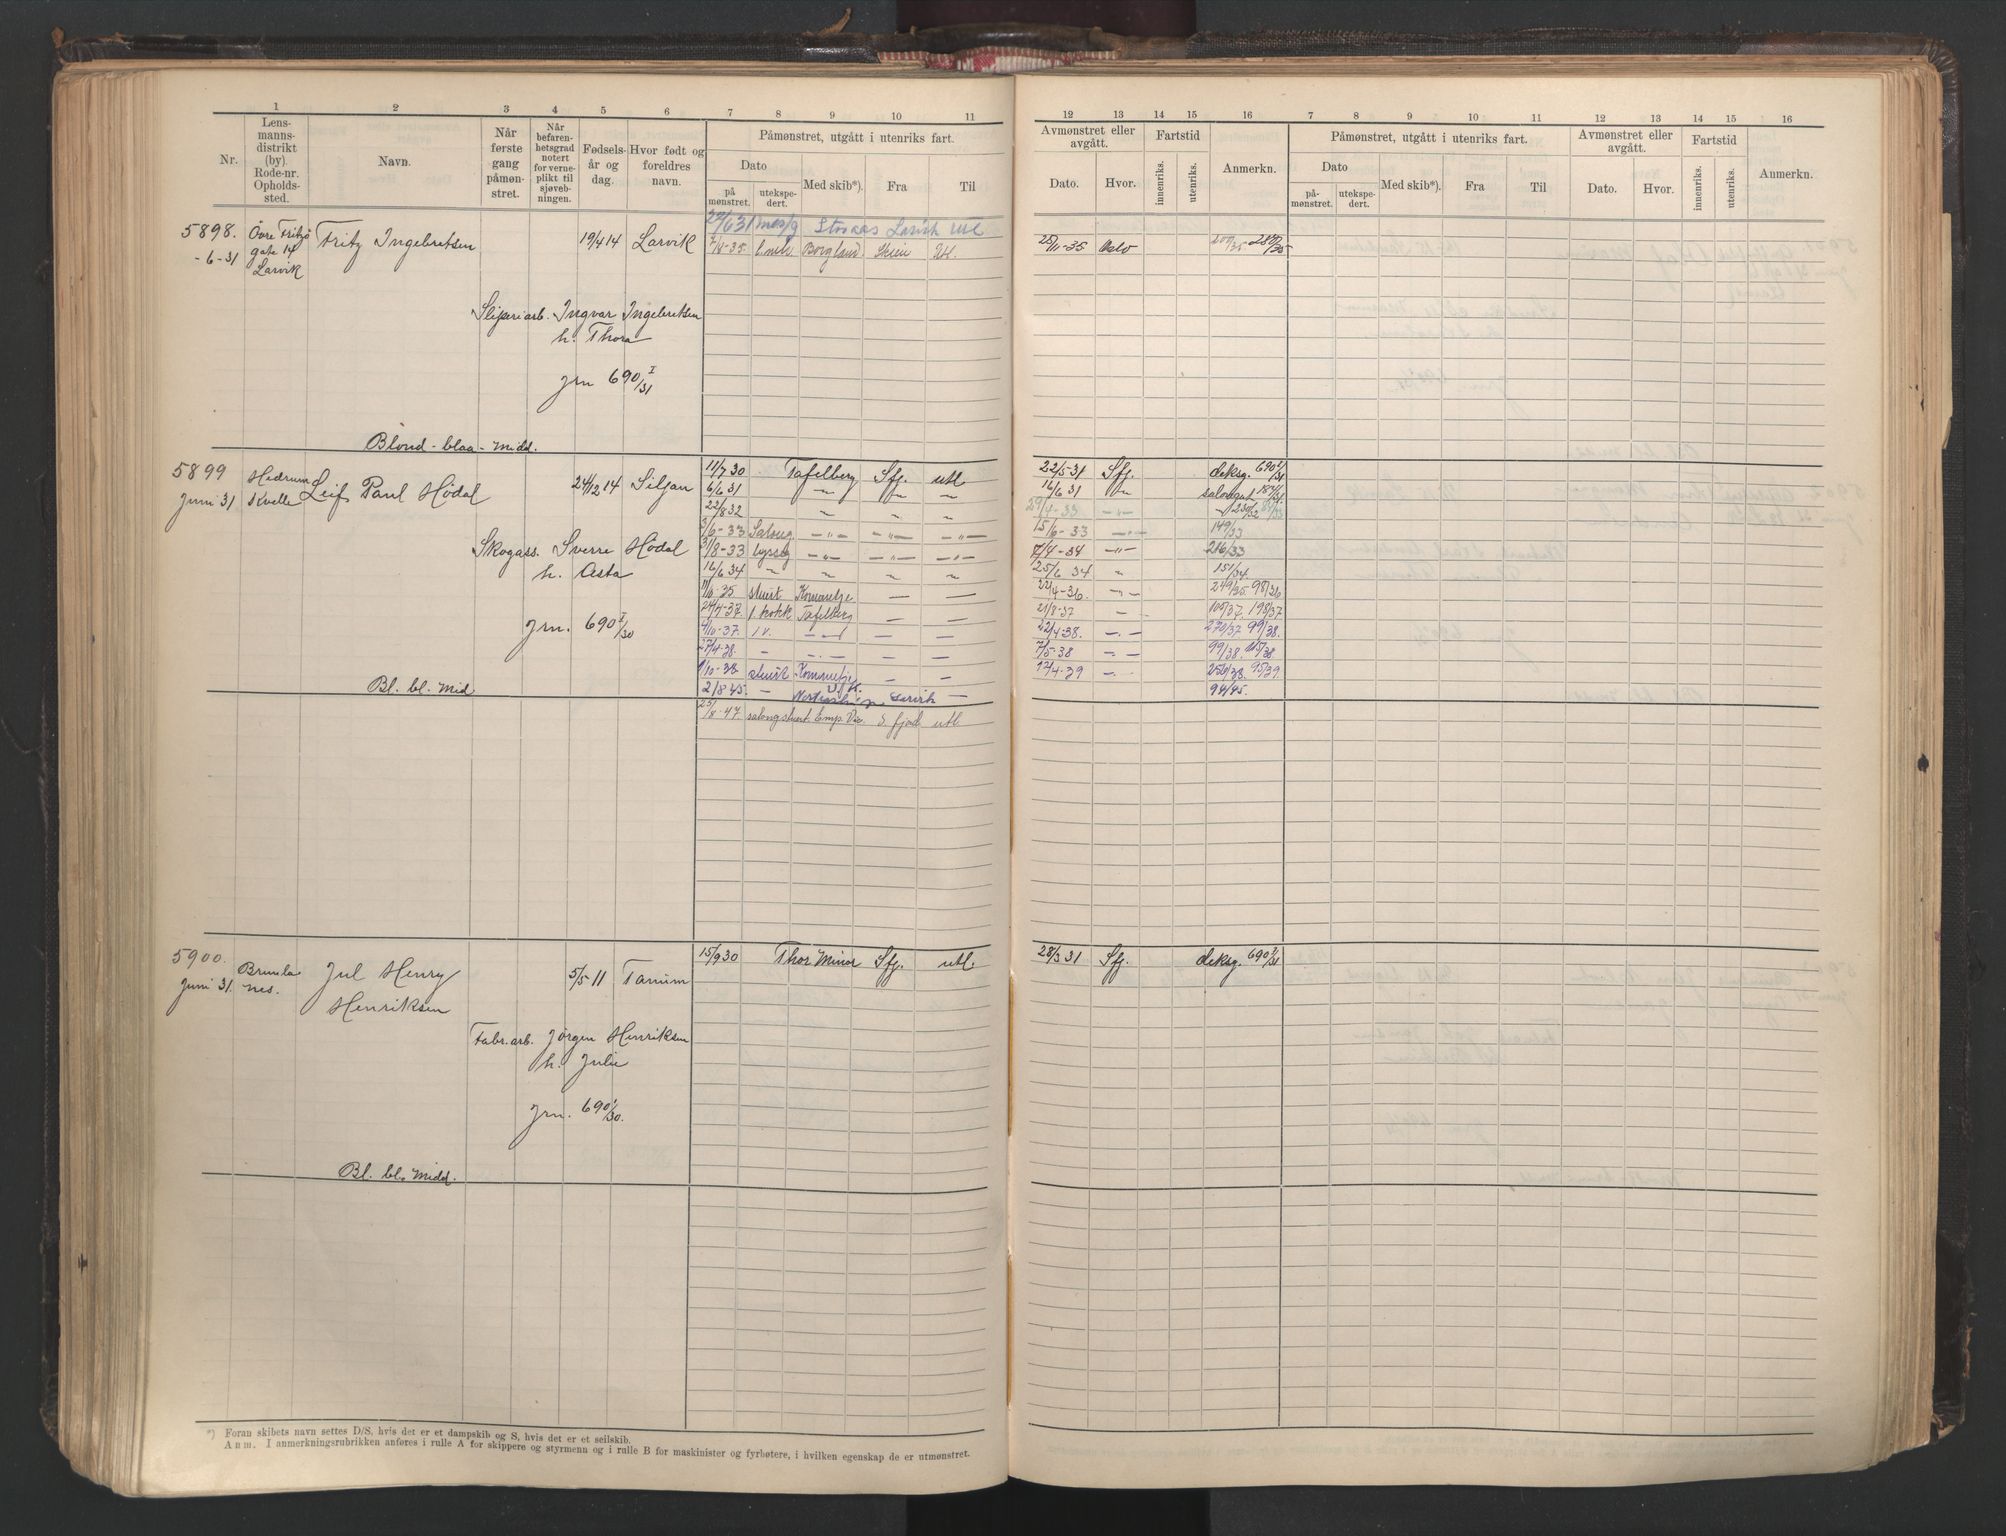 1 2 3 4 5 6 7 8 9 10 11
Nr.
Lens-
manns-
distrikt
(by).
Rode-nr.
Opholds-
sted.
Navn.
Når
første
gang
påmøn-
stret.
Når
befaren-
hetsgrad
notert
for verne-
plikt til
sjøveb-
ningen.
Fødsels-
år og
dag.
Hvor født og
foreldres
navn.
Påmønstret, utgått i utenriks fart.
Dato
på
mønstret.
utekspe-
dert.
Med skib*).
Fra
Til
12 13 14 15 16 7 8 9 10 11 12 13 14 15 16
Avmønstret eller
avgått.
Dato.
Hvor.
Fartstid
innenriks.
utenriks.
Anmerkn.
Påmønstret, utgått i utenriks fart.
Dato
på-
mønstret.
utekspe-
dert.
Med skib*).
Fra
Til
Avmønstret eller
avgått.
Dato.
Hvor.
Fartstid
innenriks.
utenriks.
Anmerkn.
5898.
-6-31
Övre Fritzø
gate 14
Larvik
Fritz Ingebretsen
19/4 14
Larvik
22/6 31
7/4-35. Borgland Skien Utl.
25/11-35 Oslo
Sliperiarb. Ingvar Ingebretsen
h. Thora
jrn 690 I/31
Blond - blaa - Midd.
5899
Juni 31
Hedrum
Kvelle
Leif Paul Hödal
24/12 14
Siljan
11/7 30 Tafelberg Sfj. utl
22/5-31 Sfj. deksg. 690 I/31
6/6 31 " " "
16/6 31 " salongut
22/8 32 " " "
29/4-33 -"-
3/6-33 -"- -"- -"-
15/6-33 -"- 149/33
31/8-33 -"- -"- -"-
7/4-34 -"- 216/33
16/6 34 " " " "
25/6 34 " 151/34
11/6-35 stuert — —
22/4-36. -"- 98/36
24/4-37. Tafelberg — —
21/8-37 — 198/37
4/10-37. — — —
22/4-38. — 270/37 99/38.
27/4-38. — — — —
7/5-38 — 99/38.
1/10-38 stuert — —
17/4-39 — 95/39
2/8 45. — Larvik —
94/45.
25/8-47 salongstuert Emp. Vic. S. fjord utl
Skogass. Sverre Hödal
h. Asta
Jrn. 690 I/30
Bl. bl. Mid
5900.
Juni 31.
Brunla
nes.
Jul Henry
Henriksen
5/5 11
Tanum
15/9 30 Thor Minor Sfj. utl.
28/3 31 Sfj. deksg. 690 I/31
Fabr.arb. Jørgen Henriksen
h. Julie
Jrn. 690 I/30.
Bl. bl. Midd.
*) Foran skibets navn settes D/S, hvis det er et dampskib og S, hvis det er et seilskib.
Anm. I anmerkningsrubrikken anføres i rulle A for skippere og styrmenn og i rulle B for maskinister og fyrbøtere, i hvilken egenskap de er utmønstret.